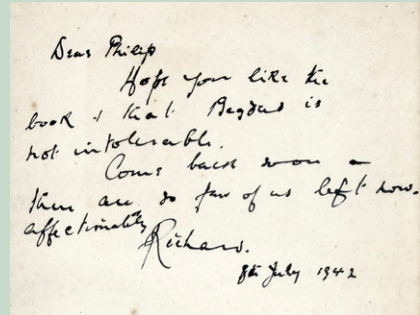 Dear Philip
Hope you like the
book & that Bagdad is
not intolerable.
Come back soon –
there are so few of us left now.
affectionately
Richard.
8th July 1942